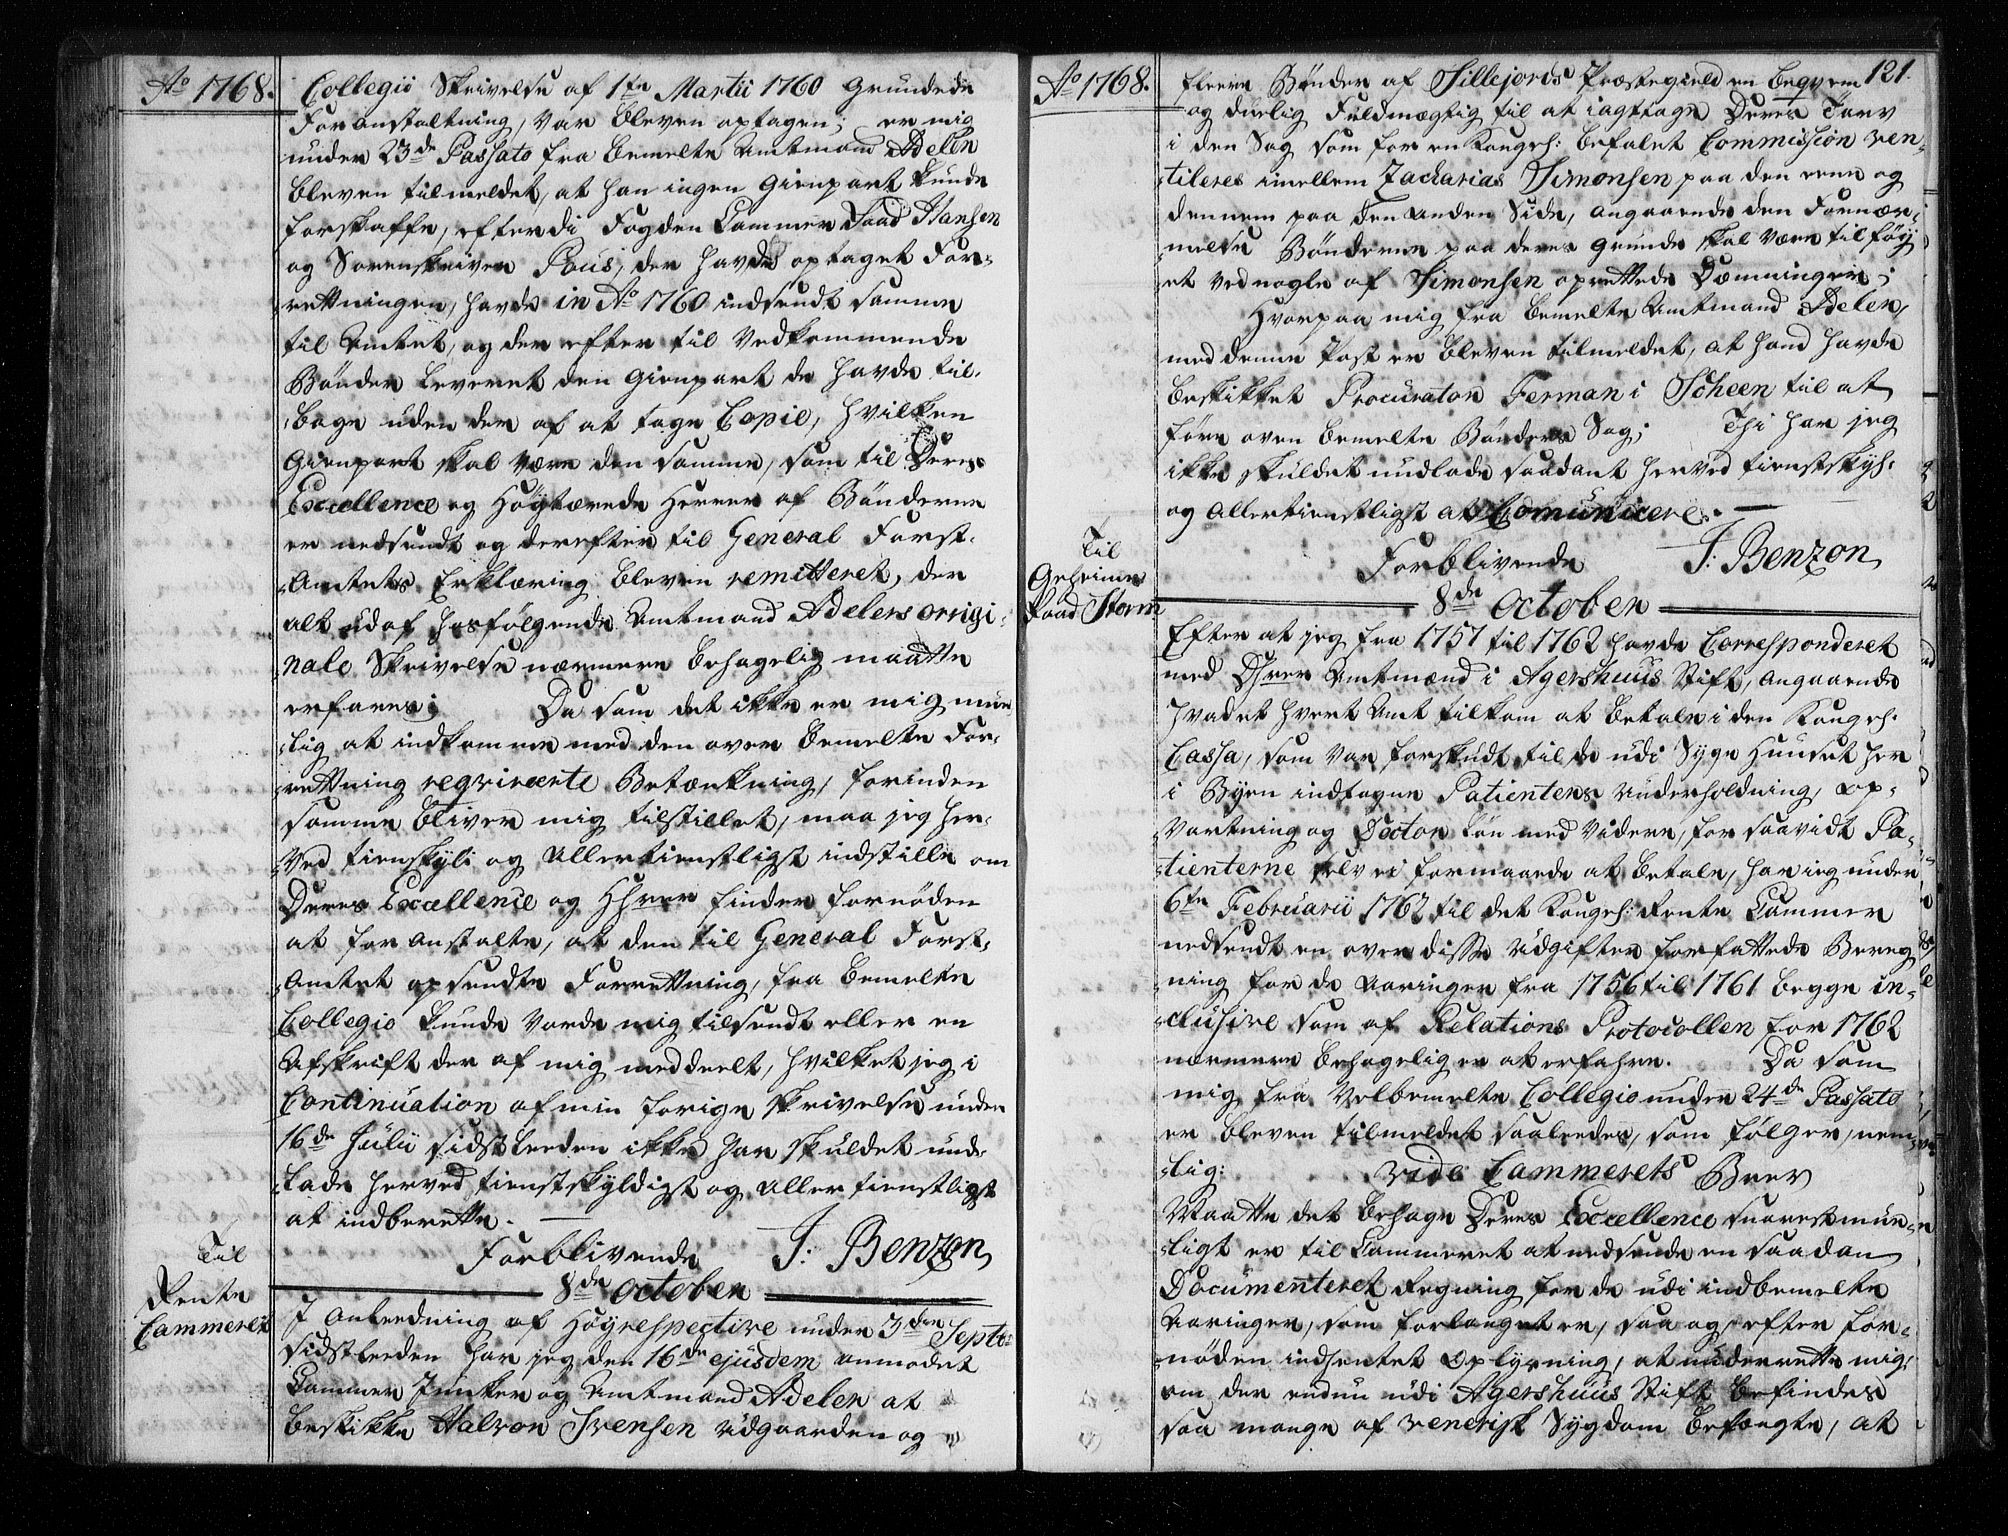 Ao 1768.
Collegii Skrivelse af 1te Martii 1760 Grundede
Foranstaltning, var bleven optagen; er mig
under 23de Passato fra bemelte Amtmand Adeler
bleven tilmeldet, at han ingen Gienpart kunde
forskaffe, efterdi Fogden Cammer Raad Hansen
og Sorenskriver Paus, der havde optaget For-
rettningen, havde in Ao 1760 indsendt samme
til Amtet, og der efter til Vedkommende
Bønder leveret den Gienpart de havde til-
bage uden der af at tage Copie, hvilken
Gienpart skal være den samme, som til Deres
Excellence og Høytærede Herrer af Bønderne
er nedsendt og derefter til General Forst-
Amtets Erklæring bleven remitteret, der
alt udaf hosfølgende Amtmand Adelers origi-
nale Skrivelse nærmere behagelig maatte
erfares; Da som det ikke er mig mue-
lig at indkomme med den over bemelte For-
rettning reqvireerte Betænkning, forinden
samme bliver mig tilstillet, maa jeg her-
ved tienstskyldigst og allertienstligst indstille om
Deres Excellence og Hhrer finder fornøden
at foranstalte, at den til General Forst-
Amtet opsendte Forrettning, fra bemelte
Collegio kunde vorde mig tilsendt eller en
Afskrift der af mig meddeelt, hvilket jeg i
Continuation af min forige Skrivelse under
16de Julii sidstleeden ikke har skuldet und-
lade herved tienstskyldigst og allertienstligst
at indberette.
Forblivende J: Benzon
8de October
Til
Rente
Cammeret
I Anledning af Høyrespective under 3den Septbr:
sidstleeden har jeg den 16de ejusdem anmodet
Cammer Junker og Amtmand Adeler at
beskikke Halvor Svensen Udgaarden og
Ao 1768.
121.
fleere Bønder af Sillejords Præstegield en beqvem
og duelig Fuldmægtig til at iagttage Deres Tarv
i den Sag som for en Kongel: befalet Commission ven-
tileres imellem Zacharias Simonsen paa den eene og
dennem paa den anden Side, angaaende den Fornær-
melse Bønderne paa deres Grunde skal være tilføy-
et ved nogle af Simonsen oprettede Dæmninger;
Hvorpaa mig fra bemelte Amtmand Adeler,
med denne Post er bleven tilmeldet, at hand havde
beskikket Procurator Ferman i Scheen til at
føre oven bemelte Bønders Sag; Thi har jeg
ikke skuldet undlade saadant herved tienstskyl-
og allertienstligst at Comunicere.
Forblivende J: Benzon
8de October
Til
Geheime
Raad Storm
Efter at jeg fra 1757 til 1762 havde Corresponderet
med Dhrer Amtmænd i Agershuus Stift, angaaende
hvadet hvert Amt tilkom at betale i den Kongel:
Cassa, som var forskudt til de udi Syge Huuset her
i Byen indtagne Patienters Underholdning, Op-
vartning og Doctor Løn med videre, for saavidt Pa-
tienterne selv ei formaaede at betale, har jeg under
6te Februarii 1762 til det Kongel: Rente Cammer
nedsendt en over disse Udgifter forfattede Bereg-
ning for de Aaringer fra 1756 til 1761 begge in-
clusive som af Relations Protocollen for 1762
nærmere behagelig er at erfahre. Da som
mig fra Velbemelte Collegio under 24de Passato
er bleven tilmeldet saaledes, som følger, nem-
lig: vide Cammerets Brev
Maatte det behage Deres Excellence snarest mue-
ligt er til Cammeret at nedsende en saadan
Documenteret Regning for de udi indbemelte
Aaringer, som forlanget er, saa og, efter for-
nøden indhentet Oplysning, at underrette mig,
om der endnu udi Agershuus Stift befindes
saa mange af venerisk Sygdom befængte, at